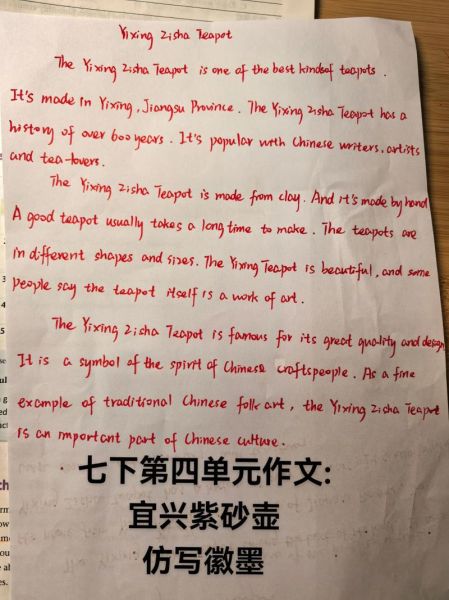 Yixing Zisha Teapot
The Yixing Zisha Teapot is one of the best kindsof teapots.
It's made in Yixing, Jiangsu Province. The Yixing Zisha Teapot has a
history of over 600 years. It's popular with Chinese writers, artists
and tea-lovers.
The Yixing Zisha Teapot is made from clay. And it's made by hand
A good teapot usually takes a long time to make. The teapots are
in different shapes and sizes. The Yixing Teapot is beautiful, and some
people say the teapot itself is a work of art.
The Yixing Zisha Teapot is famous for its great quality and design
It is a symbol of the spirit of Chinese craftspeople. As a fine
example of traditional Chinese folk art, the Yixing Zisha Teapot
is an important part of Chinese culture.
七下第四单元作文:
宜兴紫砂壶
仿写徽墨